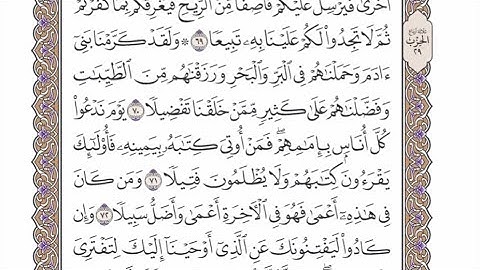 أُخْرَىٰ فَيُرْسِلَ عَلَيْكُمْ قَاصِفًا مِّنَ ٱلرِّيحِ فَيُغْرِقَكُم بِمَا كَفَرْتُمْ
ثُمَّ لَا تَجِدُوا۟ لَكُمْ عَلَيْنَا بِهِۦ تَبِيعًا ٦٩ ۞ وَلَقَدْ كَرَّمْنَا بَنِىٓ
ءَادَمَ وَحَمَلْنَٰهُمْ فِى ٱلْبَرِّ وَٱلْبَحْرِ وَرَزَقْنَٰهُم مِّنَ ٱلطَّيِّبَٰتِ
وَفَضَّلْنَٰهُمْ عَلَىٰ كَثِيرٍ مِّمَّنْ خَلَقْنَا تَفْضِيلًا ٧٠ يَوْمَ نَدْعُوا۟
كُلَّ أُنَاسٍۭ بِإِمَٰمِهِمْ ۖ فَمَنْ أُوتِىَ كِتَٰبَهُۥ بِيَمِينِهِۦ فَأُو۟لَٰٓئِكَ
يَقْرَءُونَ كِتَٰبَهُمْ وَلَا يُظْلَمُونَ فَتِيلًا ٧١ وَمَن كَانَ
فِى هَٰذِهِۦٓ أَعْمَىٰ فَهُوَ فِى ٱلْءَاخِرَةِ أَعْمَىٰ وَأَضَلُّ سَبِيلًا ٧٢ وَإِن
كَادُوا۟ لَيَفْتِنُونَكَ عَنِ ٱلَّذِىٓ أَوْحَيْنَآ إِلَيْكَ لِتَفْتَرِىَ
الحزب
٢٩